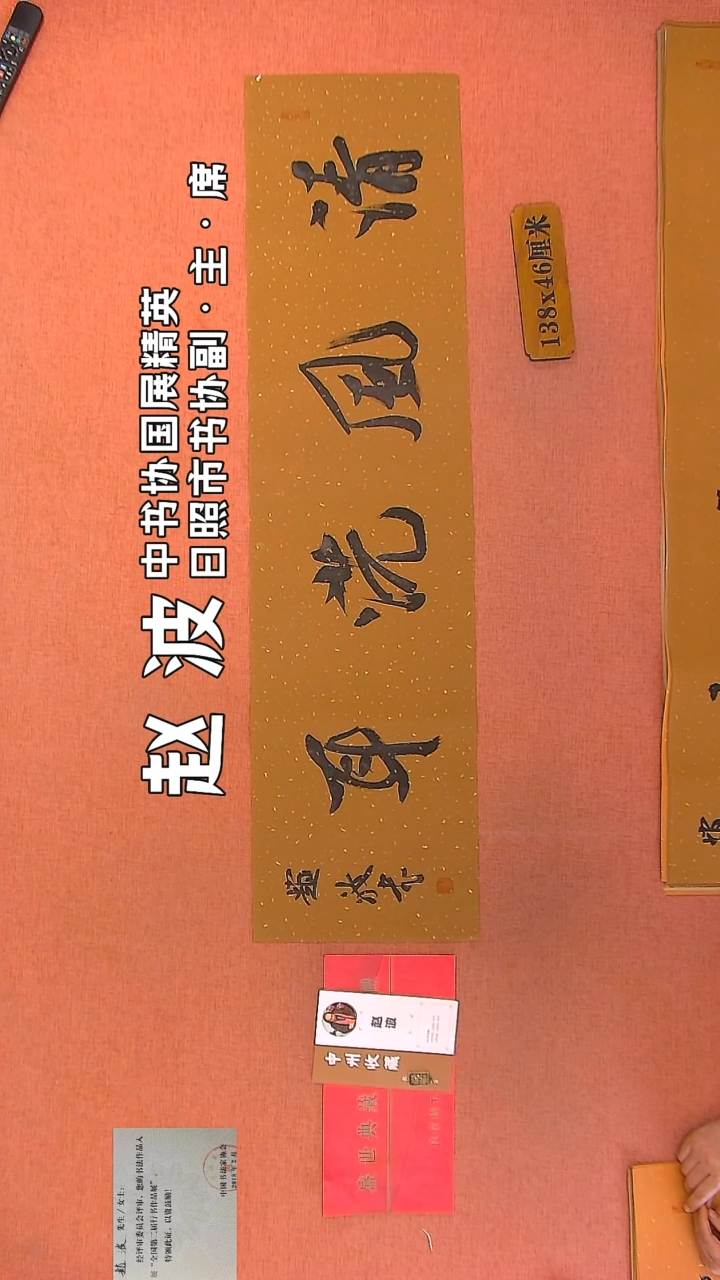 赵波
中书协国展精英
日照市书协副·主·席
清風洗耳
趙波书
138x46厘米
赵波
中州收藏
盛世典藏
赵波 先生/女士:
经评审委员会评审，您的书法作品入
展“全国第二届行书作品展”。
特颁此证，以资鼓励!
中国书法家协会